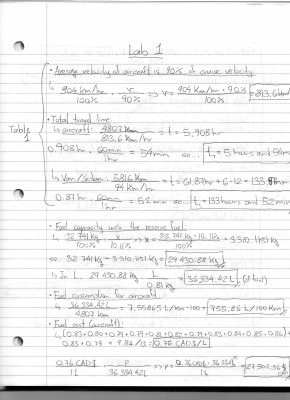 Lab 1
• Average velocity of aircraft is 90% of cruise velocity.
↳ 904 km/hr / 100% = v / 90% ⇒ v = 904 km/hr · 90% / 100% = 813.6 km/
• Total travel time
Table 1
↳ aircraft: 4807 km / 813.6 km/hr = t = 5.908hr
0.908hr · 60min / 1hr = 54min so... t₁ = 5 hours and 54m
5816 km / 94 km/hr = t = 61.87hr + 6·12 = 133.87hr
0.87hr · 60min / 1hr = 52 min so... t₂ = 133 hours and 52 min
• Fuel capacity w/o the reserve fuel
↳ 32 741 kg / 100% = x / 10.11% ⇒ x = 32 741 kg · 10.11% / 100% = 3310.1151 kg
so 32 741 kg - 3310.1151 kg = 29 430.88 kg
↳ In L, 29 430.88 kg · L / 0.81 kg = 36,334.42 L
• Fuel consumption for aircraft
↳ 36 334.42 L / 4807 km = 7.55865 L/km · 100 = 755.86 L/100km
• Fuel cost (aircraft)
0.76 CAD$/L
0.76 CAD$ / 1L = P / 36 334.42L ⇒ P =